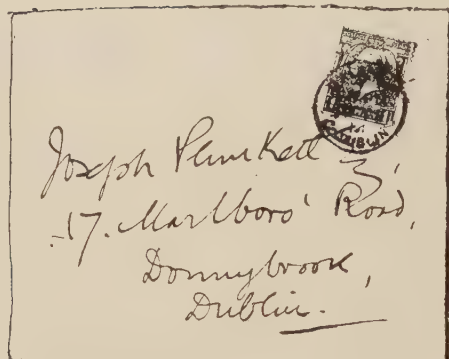 DUBLIN
Joseph Plunkett
17. Marlboro' Road,
Donnybrook,
Dublin.